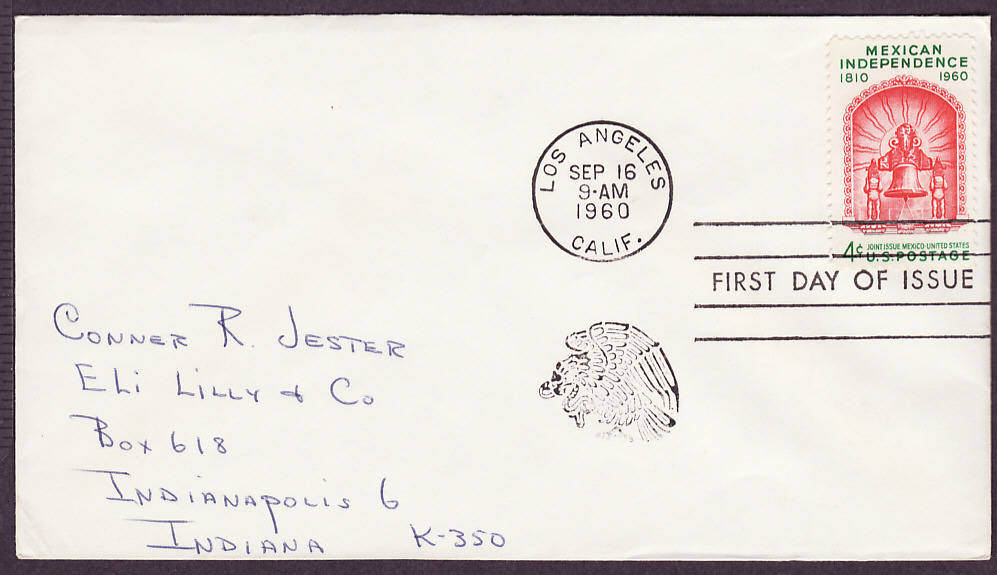 MEXICAN
INDEPENDENCE
1810 1960
4¢ JOINT ISSUE MEXICO·UNITED STATES
U.S. POSTAGE
LOS ANGELES
SEP 16
9-AM
1960
CALIF.
FIRST DAY OF ISSUE
CONNER R. JESTER
ELI LILLY & CO
BOX 618
INDIANAPOLIS 6
INDIANA K-350